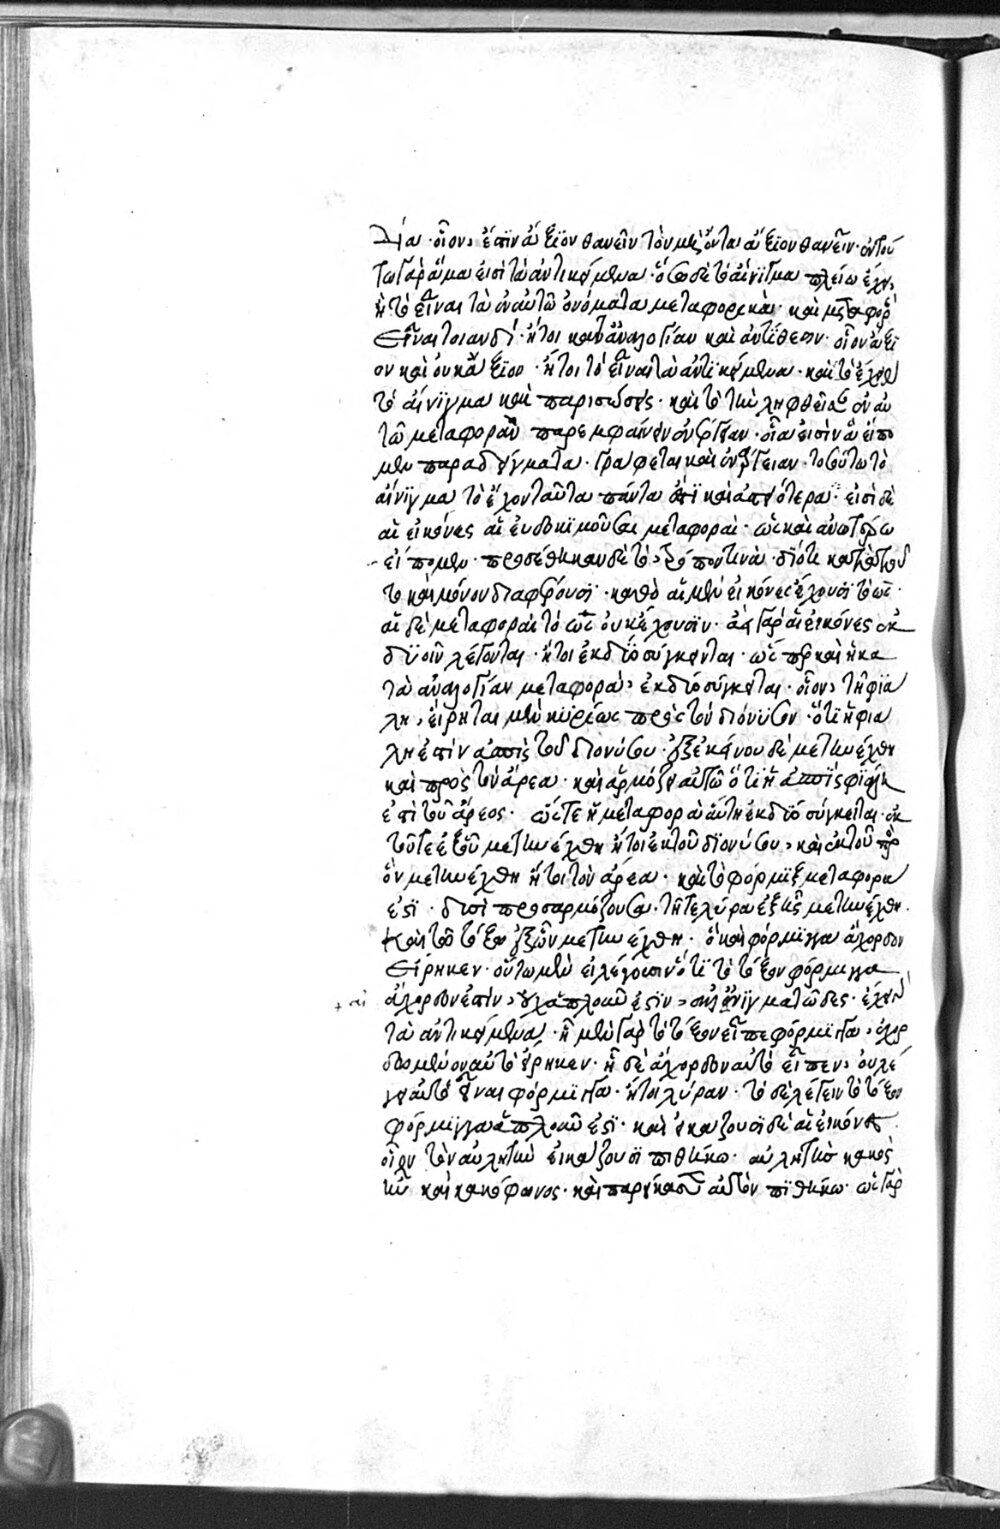 δία· οἷον, ἐστὶν ἄξιον θανεῖν τὸν μὴ ὄντα ἄξιον θανεῖν· ἐν τού
τω γὰρ ἅμα εἰσὶ τὰ ἀντικείμενα· ὅσω δὲ τὸ αἴνιγμα πλείω ἔχει,
ἢ τὸ εἶναι τὰ ἐν αὐτῶ ὀνόματα μεταφορικὰ· καὶ μεταφορὰν
εἶναι τοιανδί· ἤτοι κατ' ἀναλογίαν καὶ ἀντίθεσιν· οἷον ἄξι
ον καὶ οὐκ ἄξιον· ἤτοι τὸ εἶναι τὰ ἀντικείμενα· καὶ τὸ ἔχειν
τὸ αἴνιγμα καὶ παρισώσεις· καὶ τὸ τὴν ληφθεῖσαν ἐν αὐ
τῶ μεταφορὰν παρεμφαίνειν ἐνέργειαν· οἷα εἰσὶν ἃ εἴπο
μεν παραδείγματα· γράφεται καὶ ἐνάργειαν· τοσούτω τὸ
αἴνιγμα τὸ ἔχον ταῦτα πάντα ἐστὶ καὶ ἀστειότερα· εἰσὶ δὲ
αἱ εἰκόνες αἱ εὐδοκιμοῦσαι μεταφοραὶ· ὡς καὶ ἀνωτέρω
εἴπομεν· προσέθηκαν δὲ τὸ τρόπον τινὰ· διότι κατὰ τοῦ
το καὶ μόνον διαφέρουσι· καθὸ αἱ μὲν εἰκόνες ἔχουσι τὸ ὡς·
αἱ δὲ μεταφοραὶ τὸ ὡς οὐκ ἔχουσιν· ἀεὶ γὰρ αἱ εἰκόνες ἐκ
δυοῖν λέγονται· ἤτοι ἐκ δύο σύγκεινται· ὥσπερ καὶ ἡ κα
τὰ ἀναλογίαν μεταφορὰ, ἐκ δύο σύγκειται· οἷον, τῆ φιά
λη, εἴρηται μὲν κυρίως πρὸς τὸν διόνυσον· ὅτι ἡ φιά
λη ἐστὶν ἀσπὶς τοῦ διονύσου· ἐξ ἐκείνου δὲ μετηνέχθη
καὶ πρὸς τὸν ἄρεα· καὶ ἁρμόζει αὐτῶ ὅτι ἡ ἀσπὶς φιάλη
ἐστὶ τοῦ ἄρεος· ὥστε ἡ μεταφορὰ αὕτη ἐκ δύο σύγκειται· ἐκ
τοῦ τε ἐξ οὗ μετηνέχθη ἤτοι ἐκ τοῦ διονύσου, καὶ ἐκ τοῦ πρὸς
ὃν μετηνέχθη ἤτοι τὸν ἄρεα· καὶ τὸ φόρμιξ μεταφορὰ
ἐστι· δυσὶ προσαρμόζουσα· τῆ τε λύρα ἐξ ἧς μετηνέχθη·
καὶ τῶ τόξω ἐξ ὧν μετηνέχθη· ὃ καὶ φόρμιγγα ἄχορδον
εἴρηκεν· οὕτω μὲν εἰ λέγουσιν ὅτι τὸ τόξον φόρμιγγα
ἄχορδον ἐστὶν, οὐχ ἁπλοῦν ἐστιν, ἀλλ' αἰνιγματῶδες· ἔχει
τὰ ἀντικείμενα· ἢ μὲν γὰρ τὸ τόξον εἶπε φόρμιγγα, ἔχορ
δον μὲν ὂν αὐτὸ εἴρηκεν· ἢ δὲ ἄχορδον αὐτὸ εἶπεν, οὐ λέ
γει αὐτὸ εἶναι φόρμιγγα· ἤτοι λύραν· τὸ δὲ λέγειν τὸ τόξον
φόρμιγγα ἁπλοῦν ἐστι· καὶ εἰκάζουσι δὲ αἱ εἰκόνες
οἷον τὸν αὐλητὴν εἰκάζουσι πιθήκω· αὐλητὴς κακὸς
ἦν καὶ κακόφωνος· καὶ παρείκασαν αὐτὸν πιθήκω· ὡς γὰρ